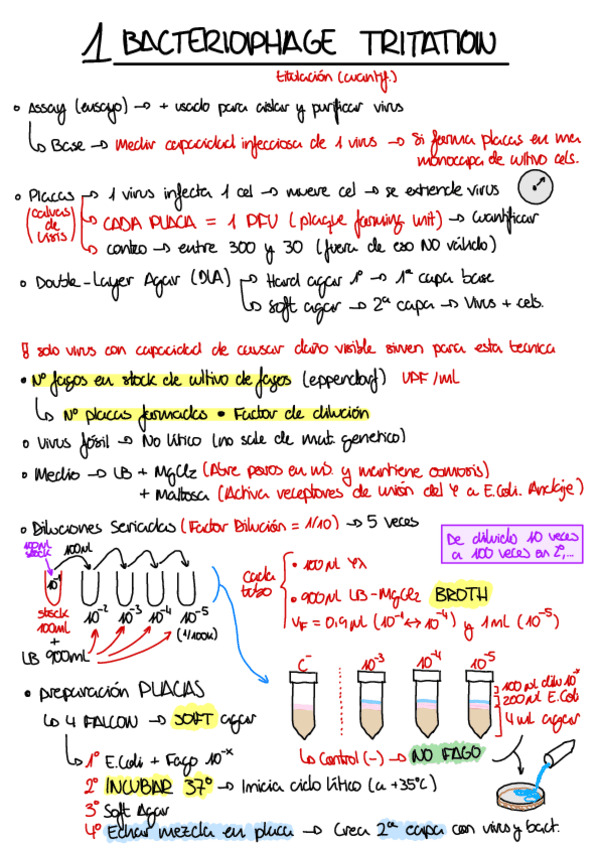 1 BACTERIOPHAGE TRITATION
titulación (cuantf.)
• Assay (ensayo) → + usado para aislar y purificar virus
↳ Base → Medir capacidad infecciosa de 1 virus → Si forma placas en una
monocapa de cultivo cels.
• Placas → 1 virus infecta 1 cel → muere cel → se extiende virus
(calvas de lisis)
→ CADA PLACA = 1 PFU (plaque forming unit) → Cuantificar
→ conteo → entre 300 y 30 (fuera de eso NO válido)
• Double-Layer Agar (DLA) → Hard agar 1º → 1ª capa base
↳ Soft agar → 2ª capa → Virus + cels.
solo virus con capacidad de causar daño visible sirven para esta tecnica
• Nº fagos en stock de cultivo de fagos (eppendorf) UPF/mL
↳ Nº placas formadas • Factor de dilución
• Virus fósil → No lítico (no sale de mat. genetico)
• Medio → LB + MgCl2 (Abre poros en mb. y mantiene osmosis)
+ Maltosa (Activa receptores de unión del φ a E.Coli. Anclaje)
• Diluciones seriadas (Factor Dilución = 1/10) → 5 veces
De diluido 10 veces
a 100 veces en 2º,...
100µl stock
100µl
10⁻¹
10⁻² 10⁻³ 10⁻⁴ 10⁻⁵
(1/100k)
stock
100mL
+
LB 900mL
cada tubo
• 100µl φλ
• 900µl LB-MgCl2 BROTH
VF = 0,9µl (10⁻¹↔10⁻⁴) y 1mL (10⁻⁵)
C⁻ 10⁻³ 10⁻⁴ 10⁻⁵
100µl dilu 10⁻ˣ
200µl E.Coli
4mL agar
• preparación PLACAS
↳ 4 FALCON → SOFT agar
↳ Control (-) → NO FAGO
↳ 1º E.Coli + Fago 10⁻ˣ
2º INCUBAR 37º → Inicia ciclo lítico (a +35ºC)
3º Soft Agar
4º Echar mezcla en placa → Crea 2ª capa con virus y bact.